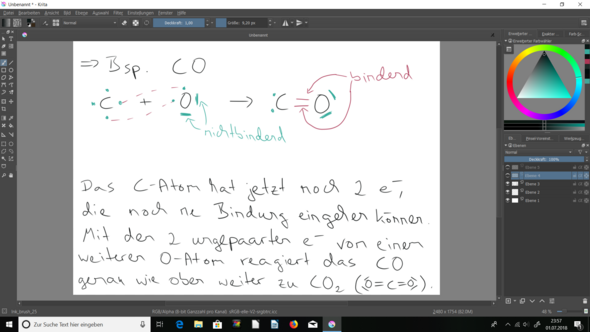 Unbenannt * - Krita
Datei Bearbeiten Ansicht Bild Ebene Auswahl Filter Einstellungen Fenster Hilfe
Normal
Deckkraft: 1,00
Größe: 9,20 px
Unbenannt
⇒ Bsp. CO
C + O → C = O
bindend
nichtbindend
Das C-Atom hat jetzt noch 2 e⁻,
die noch ne Bindung eingehen können.
Mit den 2 ungepaarten e⁻ von einem
weiteren O-Atom reagiert das CO
genau wie oben weiter zu CO₂ (O=C=O).
Ebenen
Normal
Deckkraft: 100%
Ebene 5
Ebene 4
Ebene 3
Ebene 2
Ebene 1
Zur Suche Text hier eingeben
23:57
01.07.2018